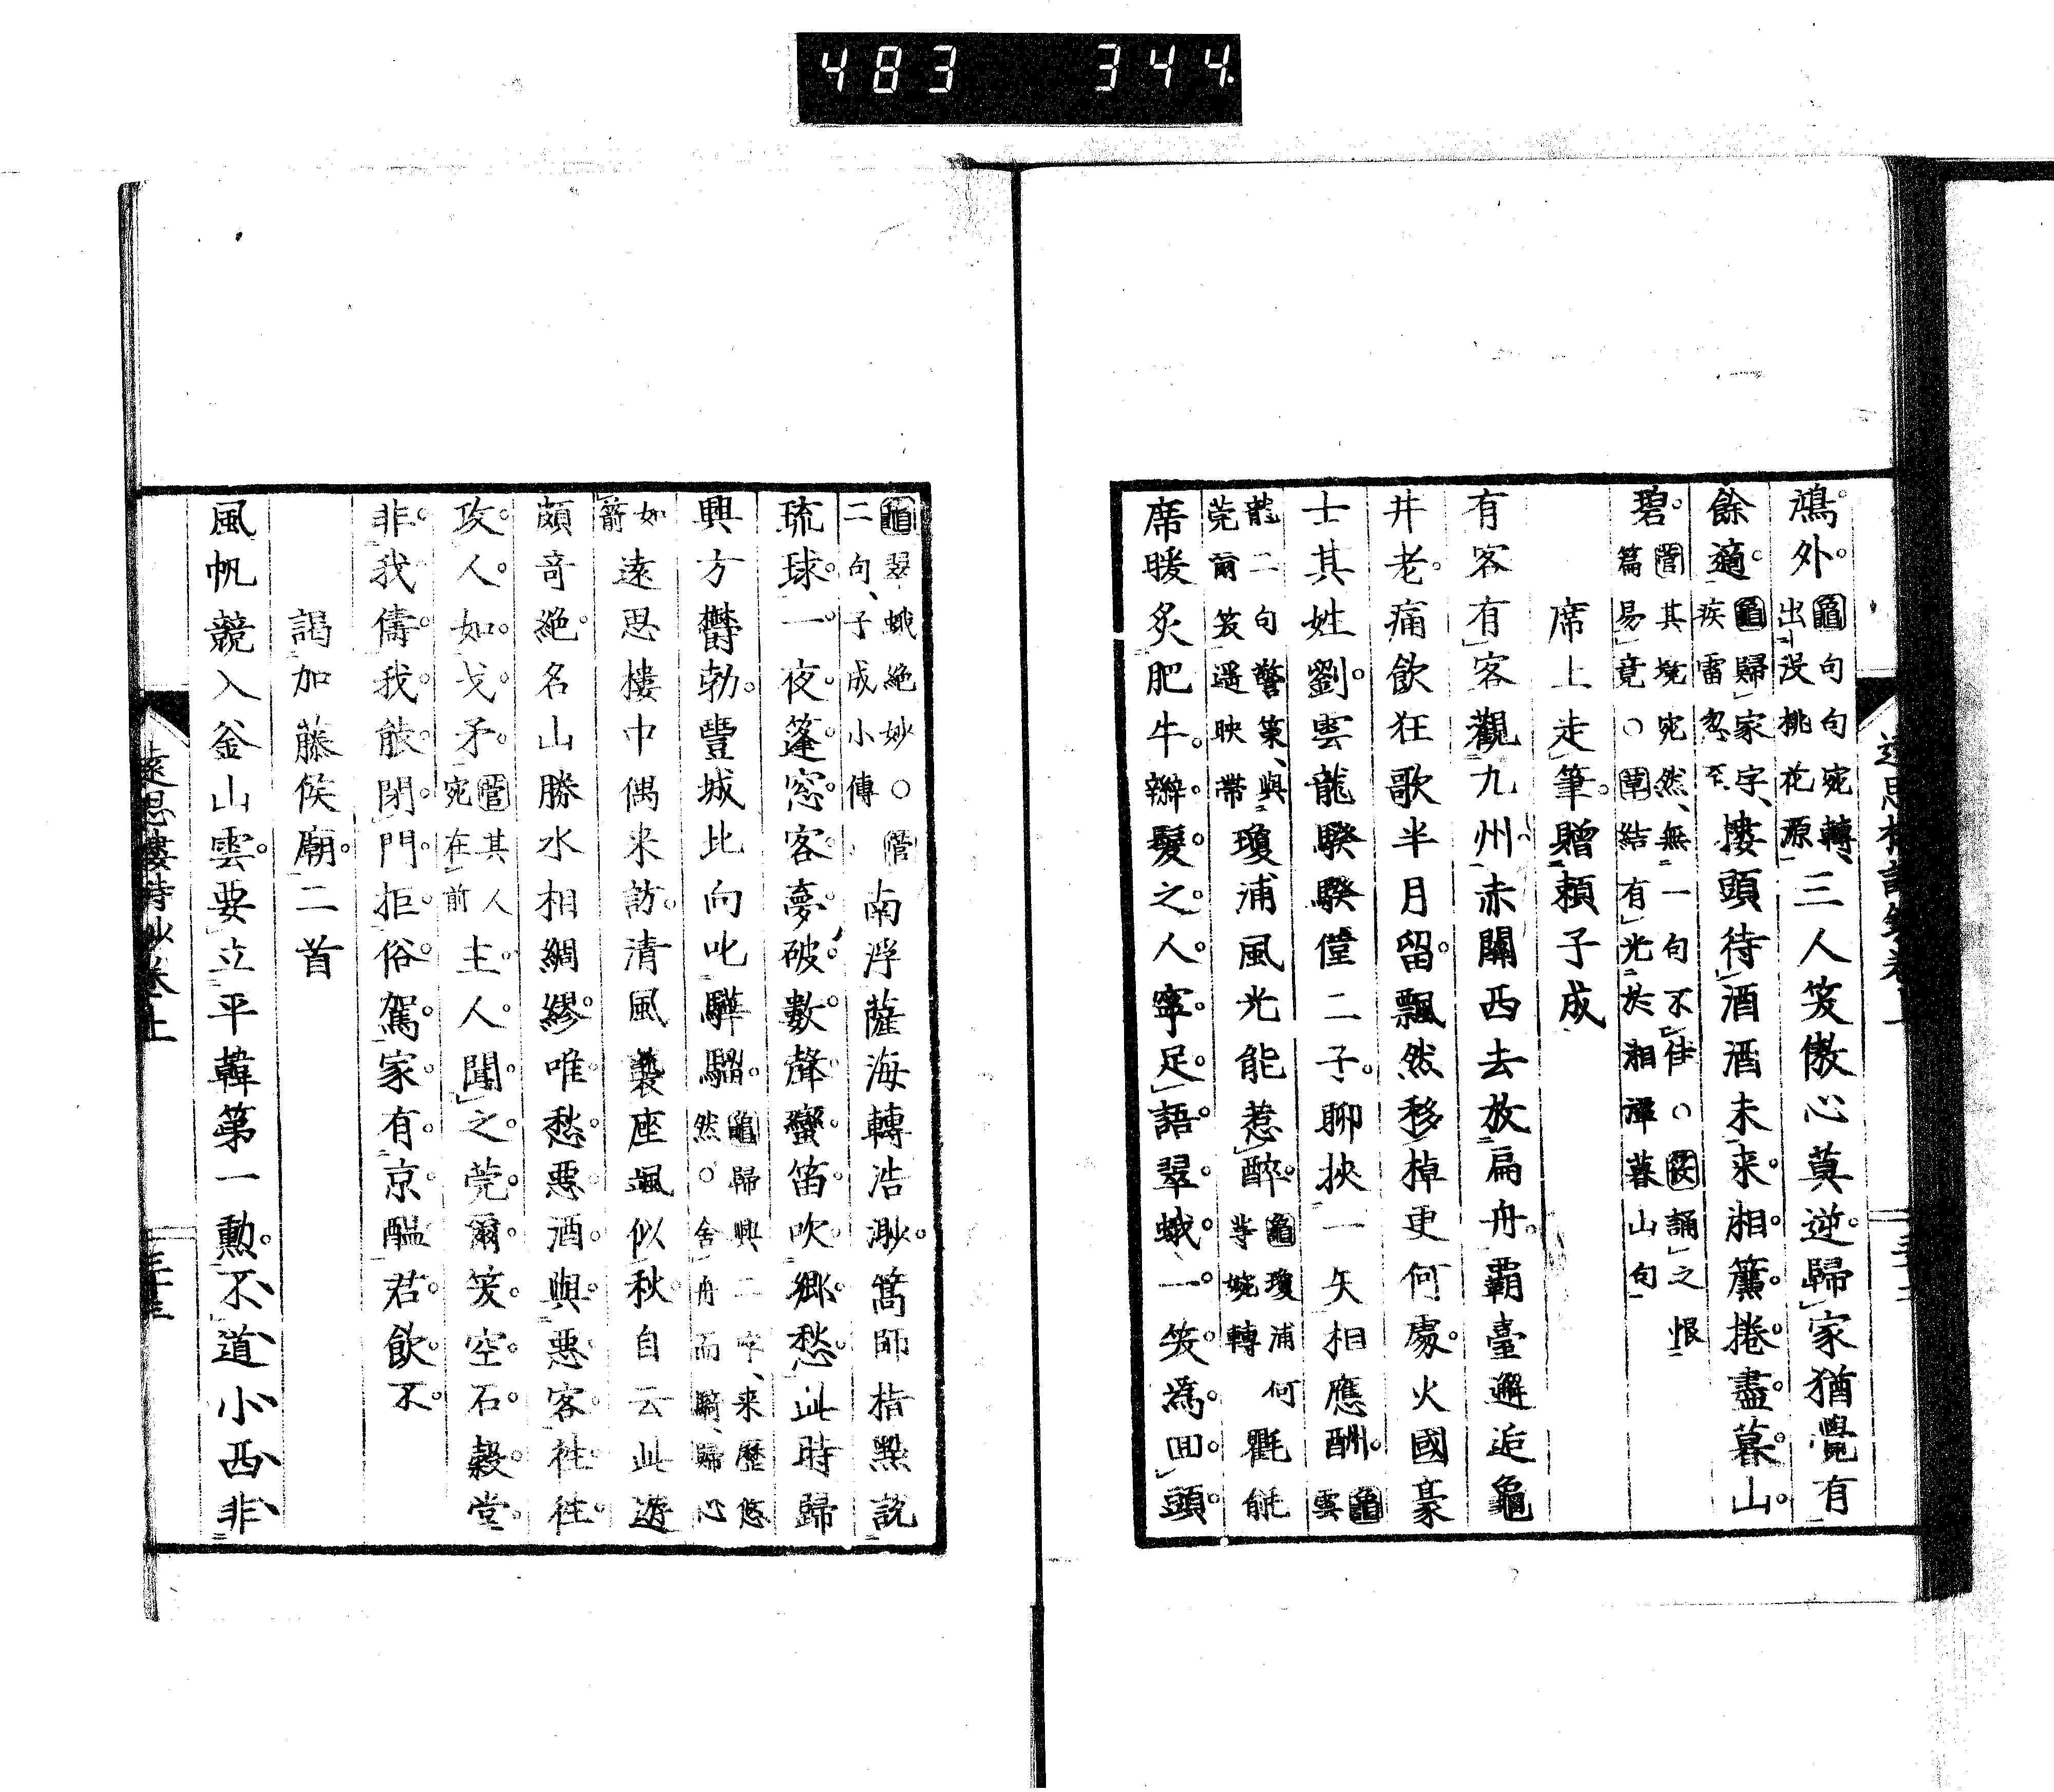 483 344
鴻外。龜句句宛轉、三人笑傲心莫逆。歸家猶覺有
出沒桃花源
餘適。龜歸家字、摟頭待酒酒未来。湘簾捲盡暮山
疾雷忽至、
碧。菅其境宛然、無一句不佳○筱誦之恨
篇易竟○草結有光於湘譚暮山句
席上走筆。贈賴子成
有客有客觀九州。赤關西去放扁舟。覇臺邂逅龜
井老。痛飲狂歌半月留。飄然移棹更何處。火國豪
士其姓劉。雲龍騤騤僅二子。聊挾一矢相應酬。龜雲
龍二句警策、與瓊浦風光能惹醉。龜瓊浦何氍毹
莞爾笑遥映帶 等婉轉
席暖炙肥牛。辮髮之人寧足語。翠蛾一笑為回頭。
龜翠蛾絶妙○菅南浮薩海轉浩渺。篙師指點說
二句、子成小傳
琉球。一夜篷窓客夢破。數聲蠻笛吹鄉愁。此時歸
興方欝勃。豐城比向叱驊騮。龜歸興二字、来歷悠
然○舍舟而騎、歸心
如箭遠思樓中偶来訪。清風襲座颯似秋。自云此遊
頗奇絶。名山勝水相綢繆。唯愁惡酒與惡客。往往
攻人如戈矛。菅其人宛在前主人聞之莞爾笑。空石穀堂
非我儔。我能閉門拒俗駕。家有京醞君飲不。
謁加藤侯廟。二首
風帆競入釜山雲。要立平韓第一勳。不道小西非
遠思樓詩鈔卷上 三十三